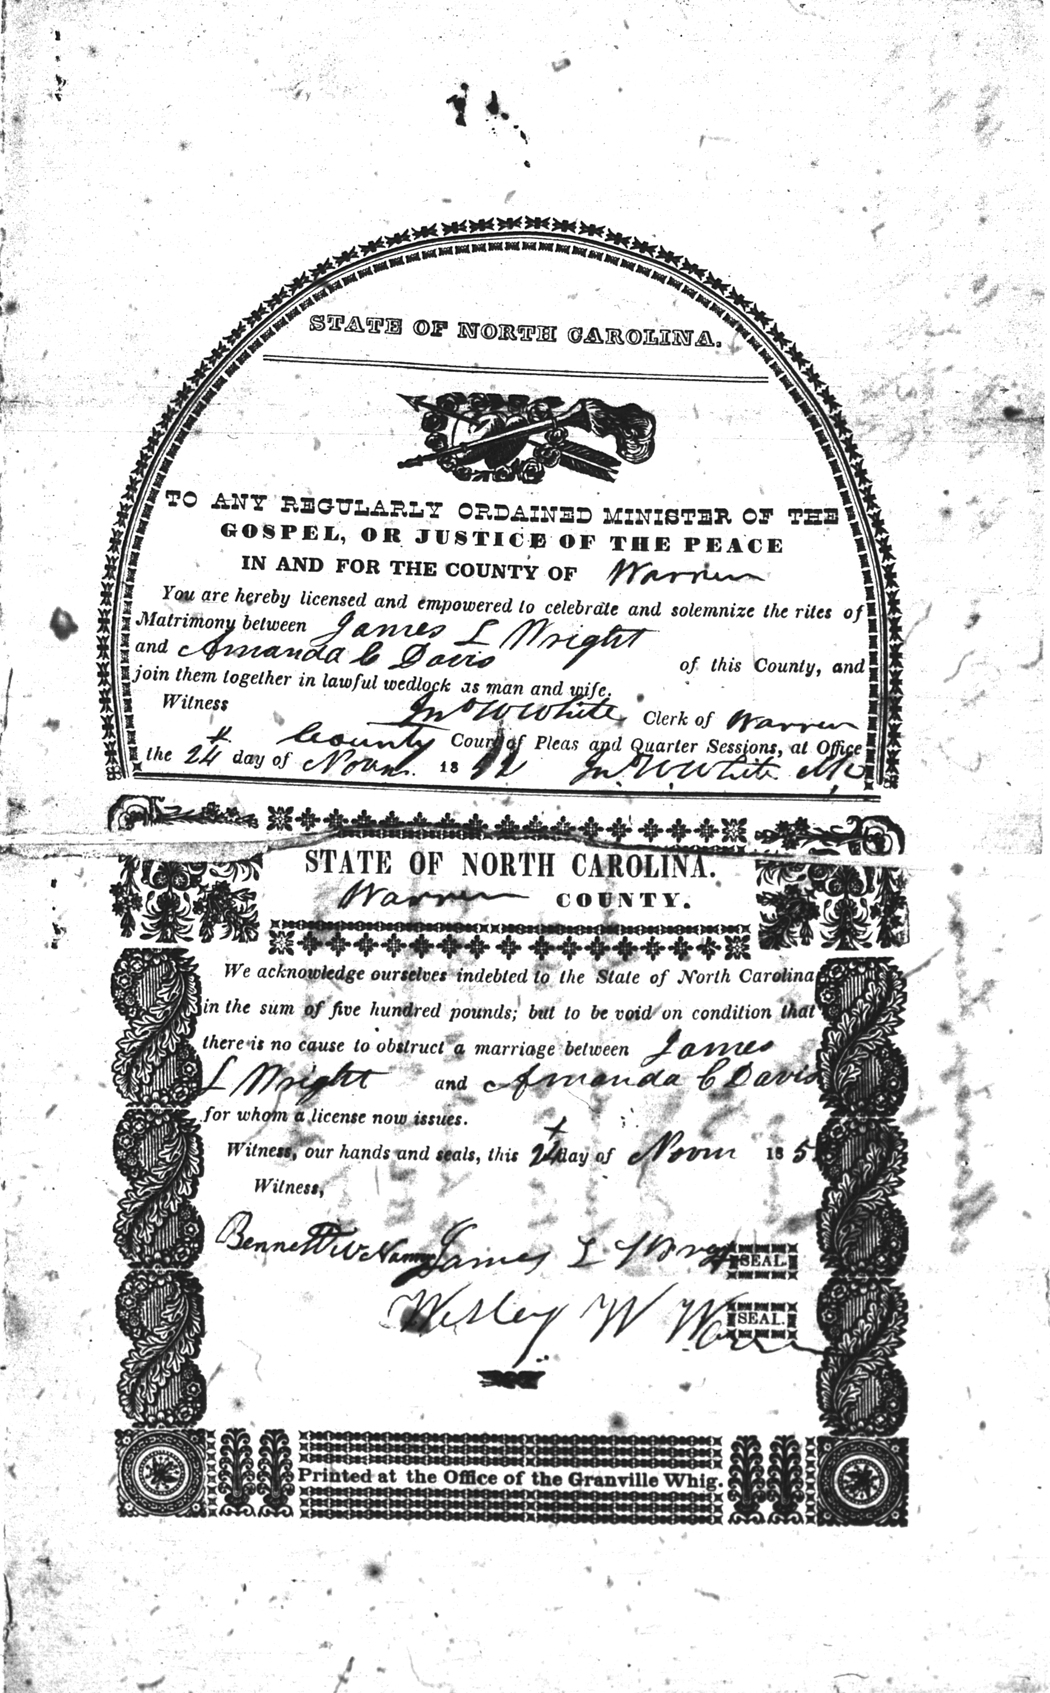 STATE OF NORTH CAROLINA.
TO ANY REGULARLY ORDAINED MINISTER OF THE
GOSPEL, OR JUSTICE OF THE PEACE
IN AND FOR THE COUNTY OF Warren
You are hereby licensed and empowered to celebrate and solemnize the rites of
Matrimony between James L Wright
and Amanda C Davis of this County, and
join them together in lawful wedlock as man and wife.
Witness Jno W White, Clerk of Warren
County Court of Pleas and Quarter Sessions, at Office
the 24th day of Novm. 18 Jno W White
STATE OF NORTH CAROLINA.
Warren COUNTY.
We acknowledge ourselves indebted to the State of North Carolina
in the sum of five hundred pounds; but to be void on condition that
there is no cause to obstruct a marriage between James
L Wright and Amanda C Davis
for whom a license now issues.
Witness, our hands and seals, this 24t day of Novm 185
Witness,
Bennett James L SEAL.
Wesley W SEAL.
Printed at the Office of the Granville Whig.